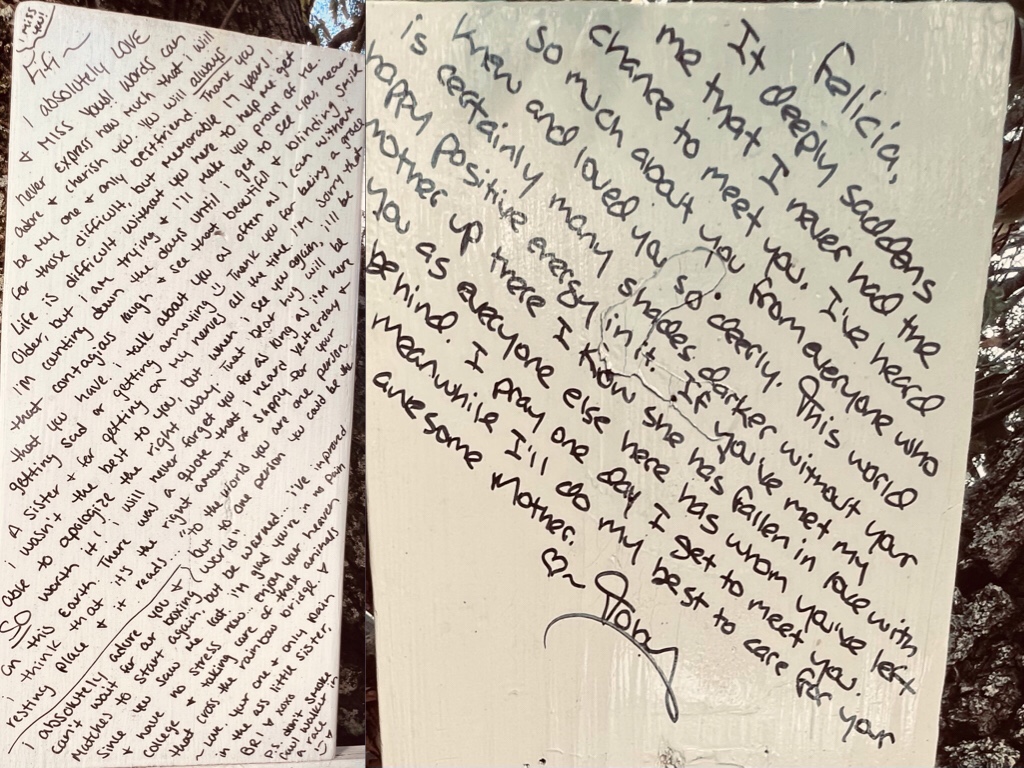 miss you!
Fifi~
I absolutely LOVE
& miss you! words can
never express how much that i will
adore & cherish you. You will always
be my one & only bestfriend. Thank you
for those difficult, but memorable 17 years!
Life is difficult without you here to help me get
older, but i am trying & i'll make you proud of me.
i'm counting down the days until i get to see you, hear
that contagious laugh & see that beautiful & blinding smile
that you have. i talk about you as often as i can without
getting sad or getting annoying Thank you for being a great
sister & for getting on my nerves all the time. i'm sorry that
i wasn't the best to you, but when i see you again, i'll be
able to apologize the right way. That bear hug will be
SO worth it! i will never forget you for as long as i'm here
on this Earth. There was a quote that i heard yesterday &
i think that it's the right amount of sappy for your
resting place & it reads... "to the world you are one person
but to one person you could be the
world"
i absolutely adore you &
can't wait for our boxing
matches to start again, but be warned... i've improved
since you saw me last. i'm glad you're in no pain
& have no stress now... enjoy your heaven
college & taking care of those animals
that cross the rainbow bridge.
~ Love your one & only pain
in the ass little sister,
BRI & xoxo
P.s. don't smoke
Felicia,
It deeply saddens
me that I never had the
chance to meet you. I've heard
so much about you from everyone who
knew and loved you so dearly. This world
is certainly many shades darker without your
happy positive energy in it. If you've met my
mother up there I know she has fallen in love with
you as everyone else here has whom you've left
behind. I pray one day I get to meet you.
Meanwhile I'll do my best to care for your
awesome Mother.
♡~ Tony